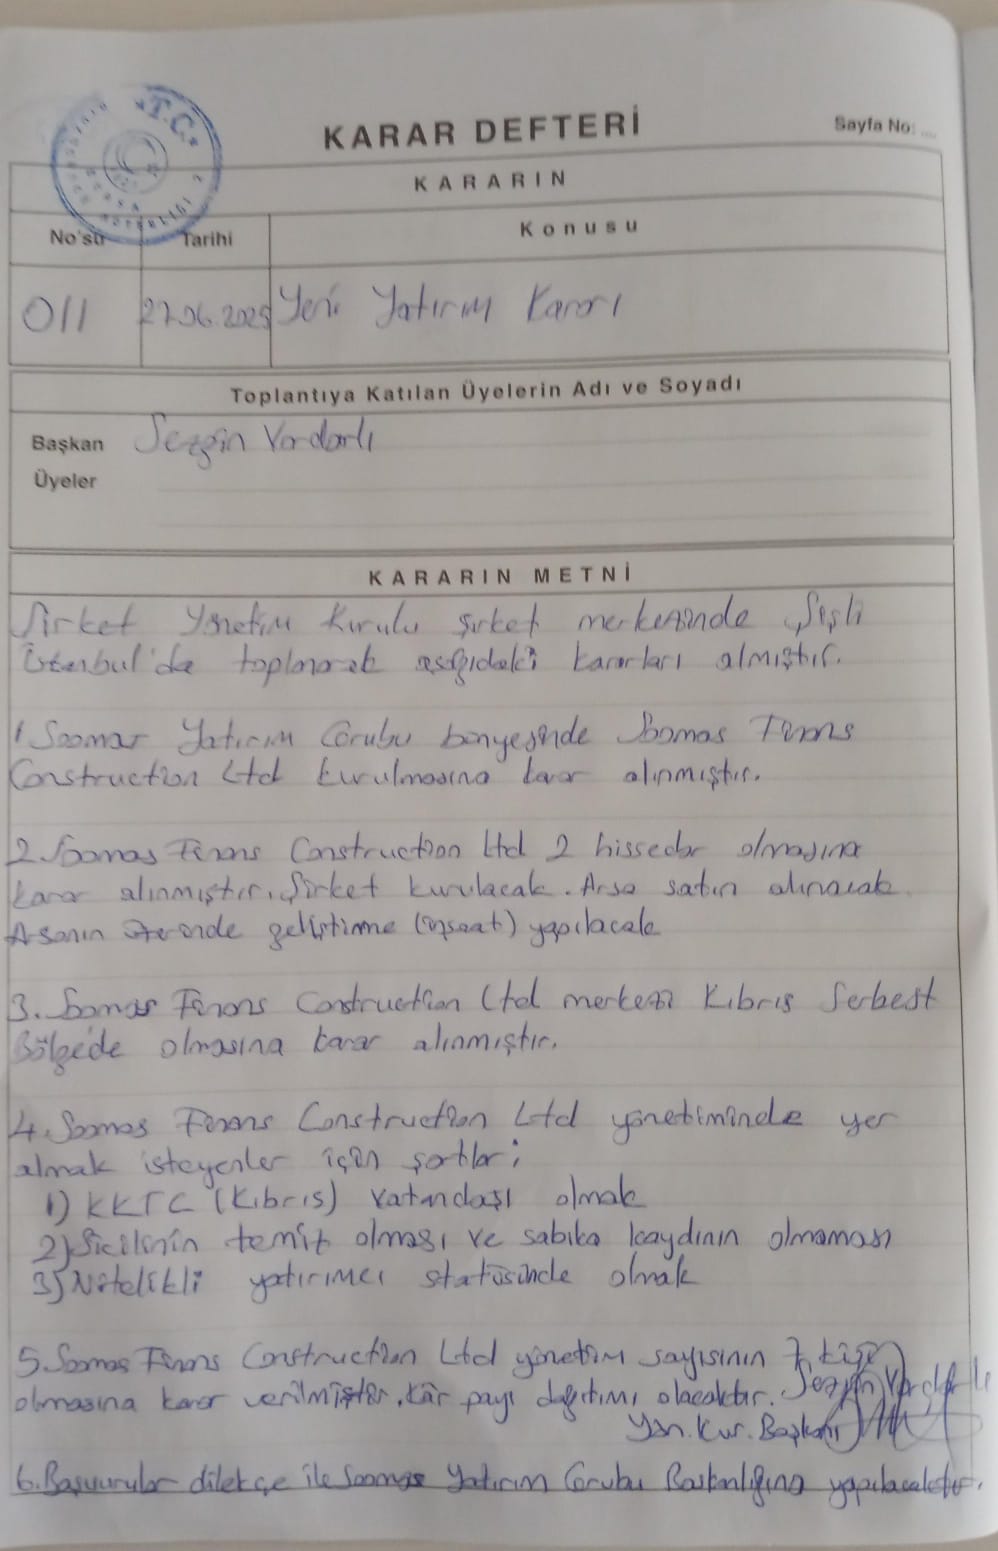 T.C.
KARAR DEFTERİ
Sayfa No: ....
KARARIN
No'su Tarihi Konusu
011 27.06.2025 Yeni Yatırım Kararı
Toplantıya Katılan Üyelerin Adı ve Soyadı
Başkan Sezgin Vardarlı
Üyeler
KARARIN METNİ
Şirket Yönetim Kurulu şirket merkezinde Şişli
İstanbul'da toplanarak aşağıdaki kararları almıştır.
1 Soomar Yatırım Grubu bünyesinde Soomas Finans
Construction Ltd kurulmasına karar alınmıştır.
2. Soomas Finans Construction Ltd 2 hissedar olmasına
karar alınmıştır. Şirket kurulacak. Arsa satın alınacak.
Arsanın üzerinde geliştirme (inşaat) yapılacak
3. Soomas Finans Construction Ltd merkezi Kıbrıs Serbest
Bölgede olmasına karar alınmıştır.
4. Soomas Finans Construction Ltd yönetiminde yer
almak isteyenler için şartlar;
1) KKTC (Kıbrıs) vatandaşı olmak
2) Sicilinin temiz olması ve sabıka kaydının olmaması
3) Nitelikli yatırımcı statüsünde olmak
5. Soomas Finans Construction Ltd yönetim sayısının 7 kişi
olmasına karar verilmiştir. Kâr payı dağıtımı olacaktır. Sezgin Vardarlı
Yön. Kur. Başkanı
6. Başvurular dilekçe ile Soomas Yatırım Grubu Başkanlığına yapılacaktır.